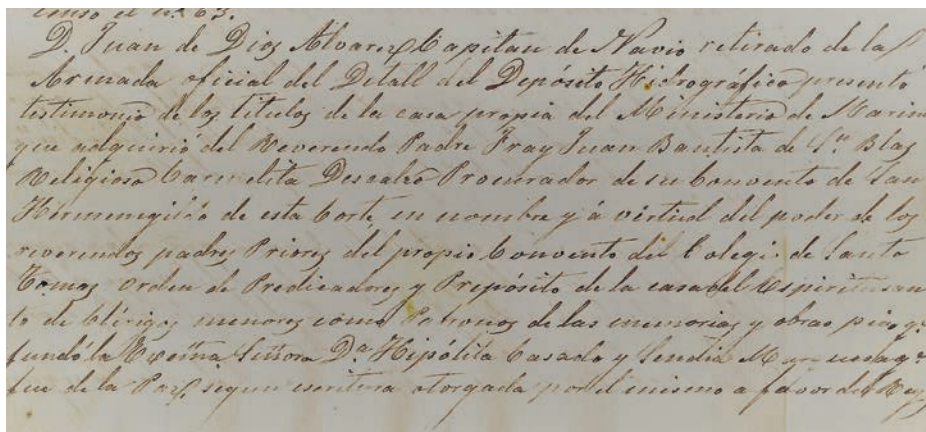 censo el n.º 63.
D. Juan de Dios Alvarez Capitan de Navio retirado de la
Armada oficial del Detall del Depósito Hidrográfico presentó
testimonio de los titulos de la casa propia del Ministerio de Marina
que adquirió del Reverendo Padre Fray Juan Bautista de S.n Blas
Religioso Carmelita Descalzo Procurador de su Convento de San
Hermenegildo de esta Corte, en nombre y á virtud del poder de los
reverendos padres Priores del propio Convento del Colegio de Santo
Tomas orden de Predicadores y Prepósito de la casa del Espiritusan
to de Clérigos menores como Patronos de las memorias y obras pias q.e
fundó la Excma Señora D.a Hipólita Casado y
fue de la Paz, segun escritura otorgada por el mismo a favor del Rey